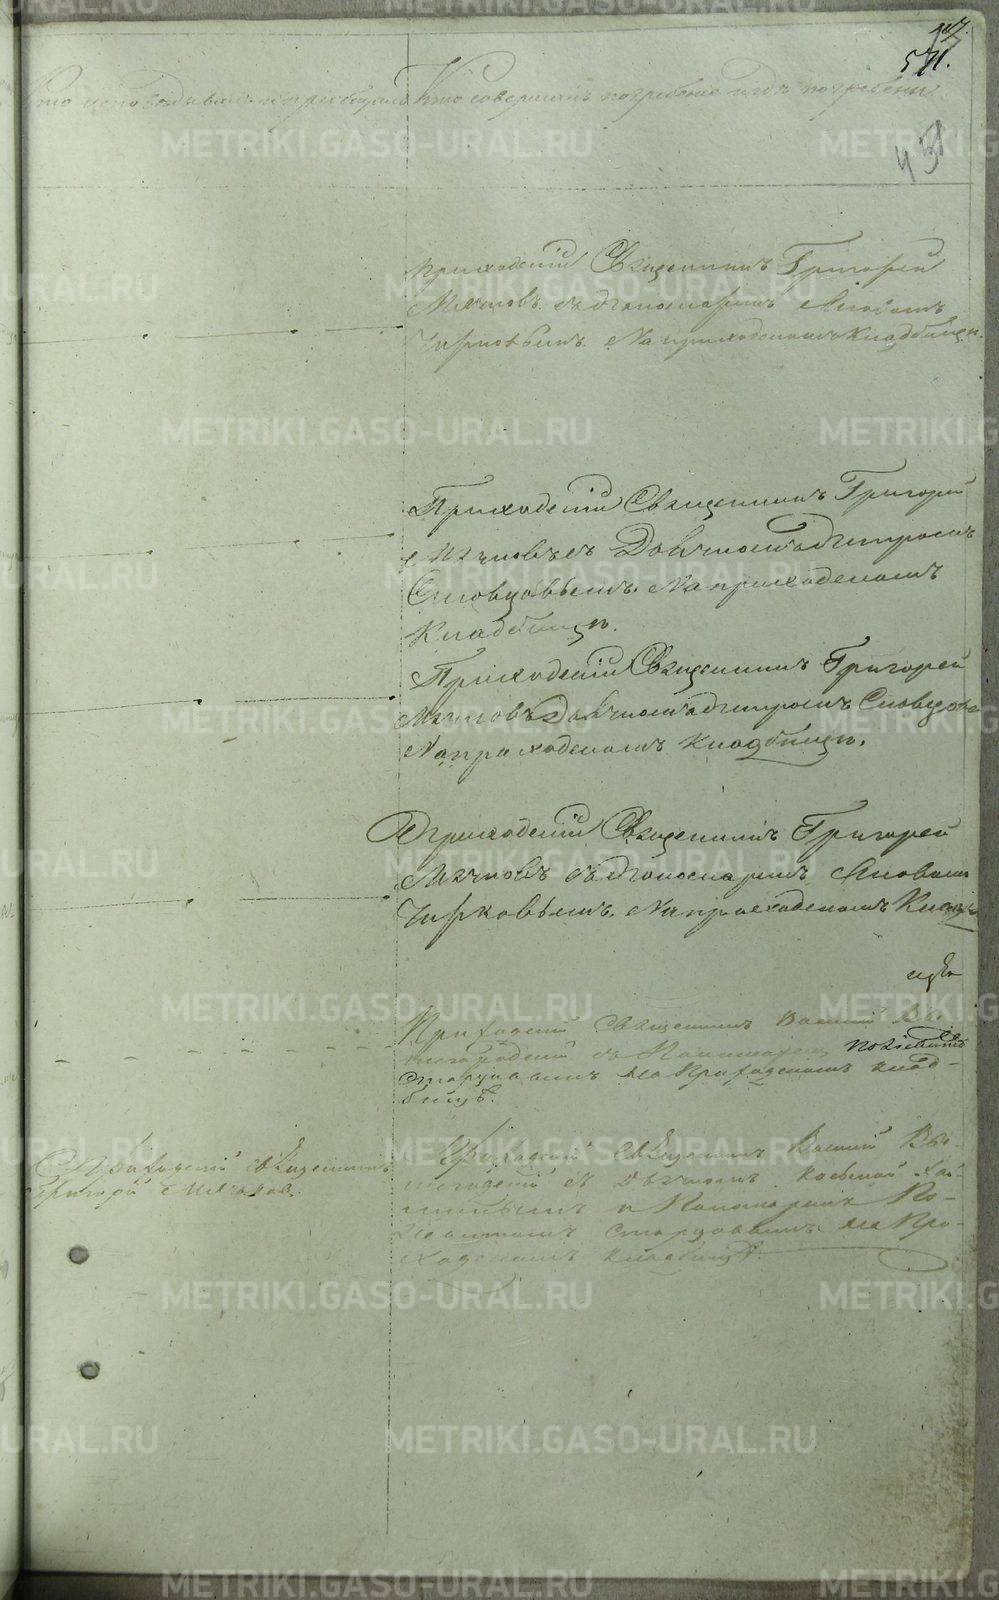 571.
Кто исповѣдывалъ и прiобщалъ
Кто совершалъ погребенiе и гдѣ погребены
45
приходскiй Священникъ Григорей
Мячковъ съ дьпономаремъ Яковомъ
Чирковымъ. На приходскомъ Кладбищѣ.
Приходскiй Священникъ Григорей
Мячковъ съ Дьячкомъ Дмитромъ
Словцовымъ. На приходскомъ
Кладбищѣ.
Приходскiй Священникъ Григорей
Мячковъ Дьячкомъ Дмитромъ Словцовы
На приходскомъ кладбищѣ.
Приходскiй Священникъ Григорей
Мячковъ съ пономаремъ Яковомъ
Чирковымъ. На приходскомъ Клад
ищѣ
Приходскiй Священникъ Василiй Вы-
шегородскiй съ Пономаремъ
Старцовымъ на Приходскомъ клад-
бищѣ.
Приходскiй священникъ
Григорiй Мячковъ.
Приходскiй Священникъ Василiй Вы-
съ Дьячкомъ Козьмой
и Пономаремъ По-
Старцовымъ на При-
ходскомъ кладбищѣ.
METRIKI.GASO-URAL.RU